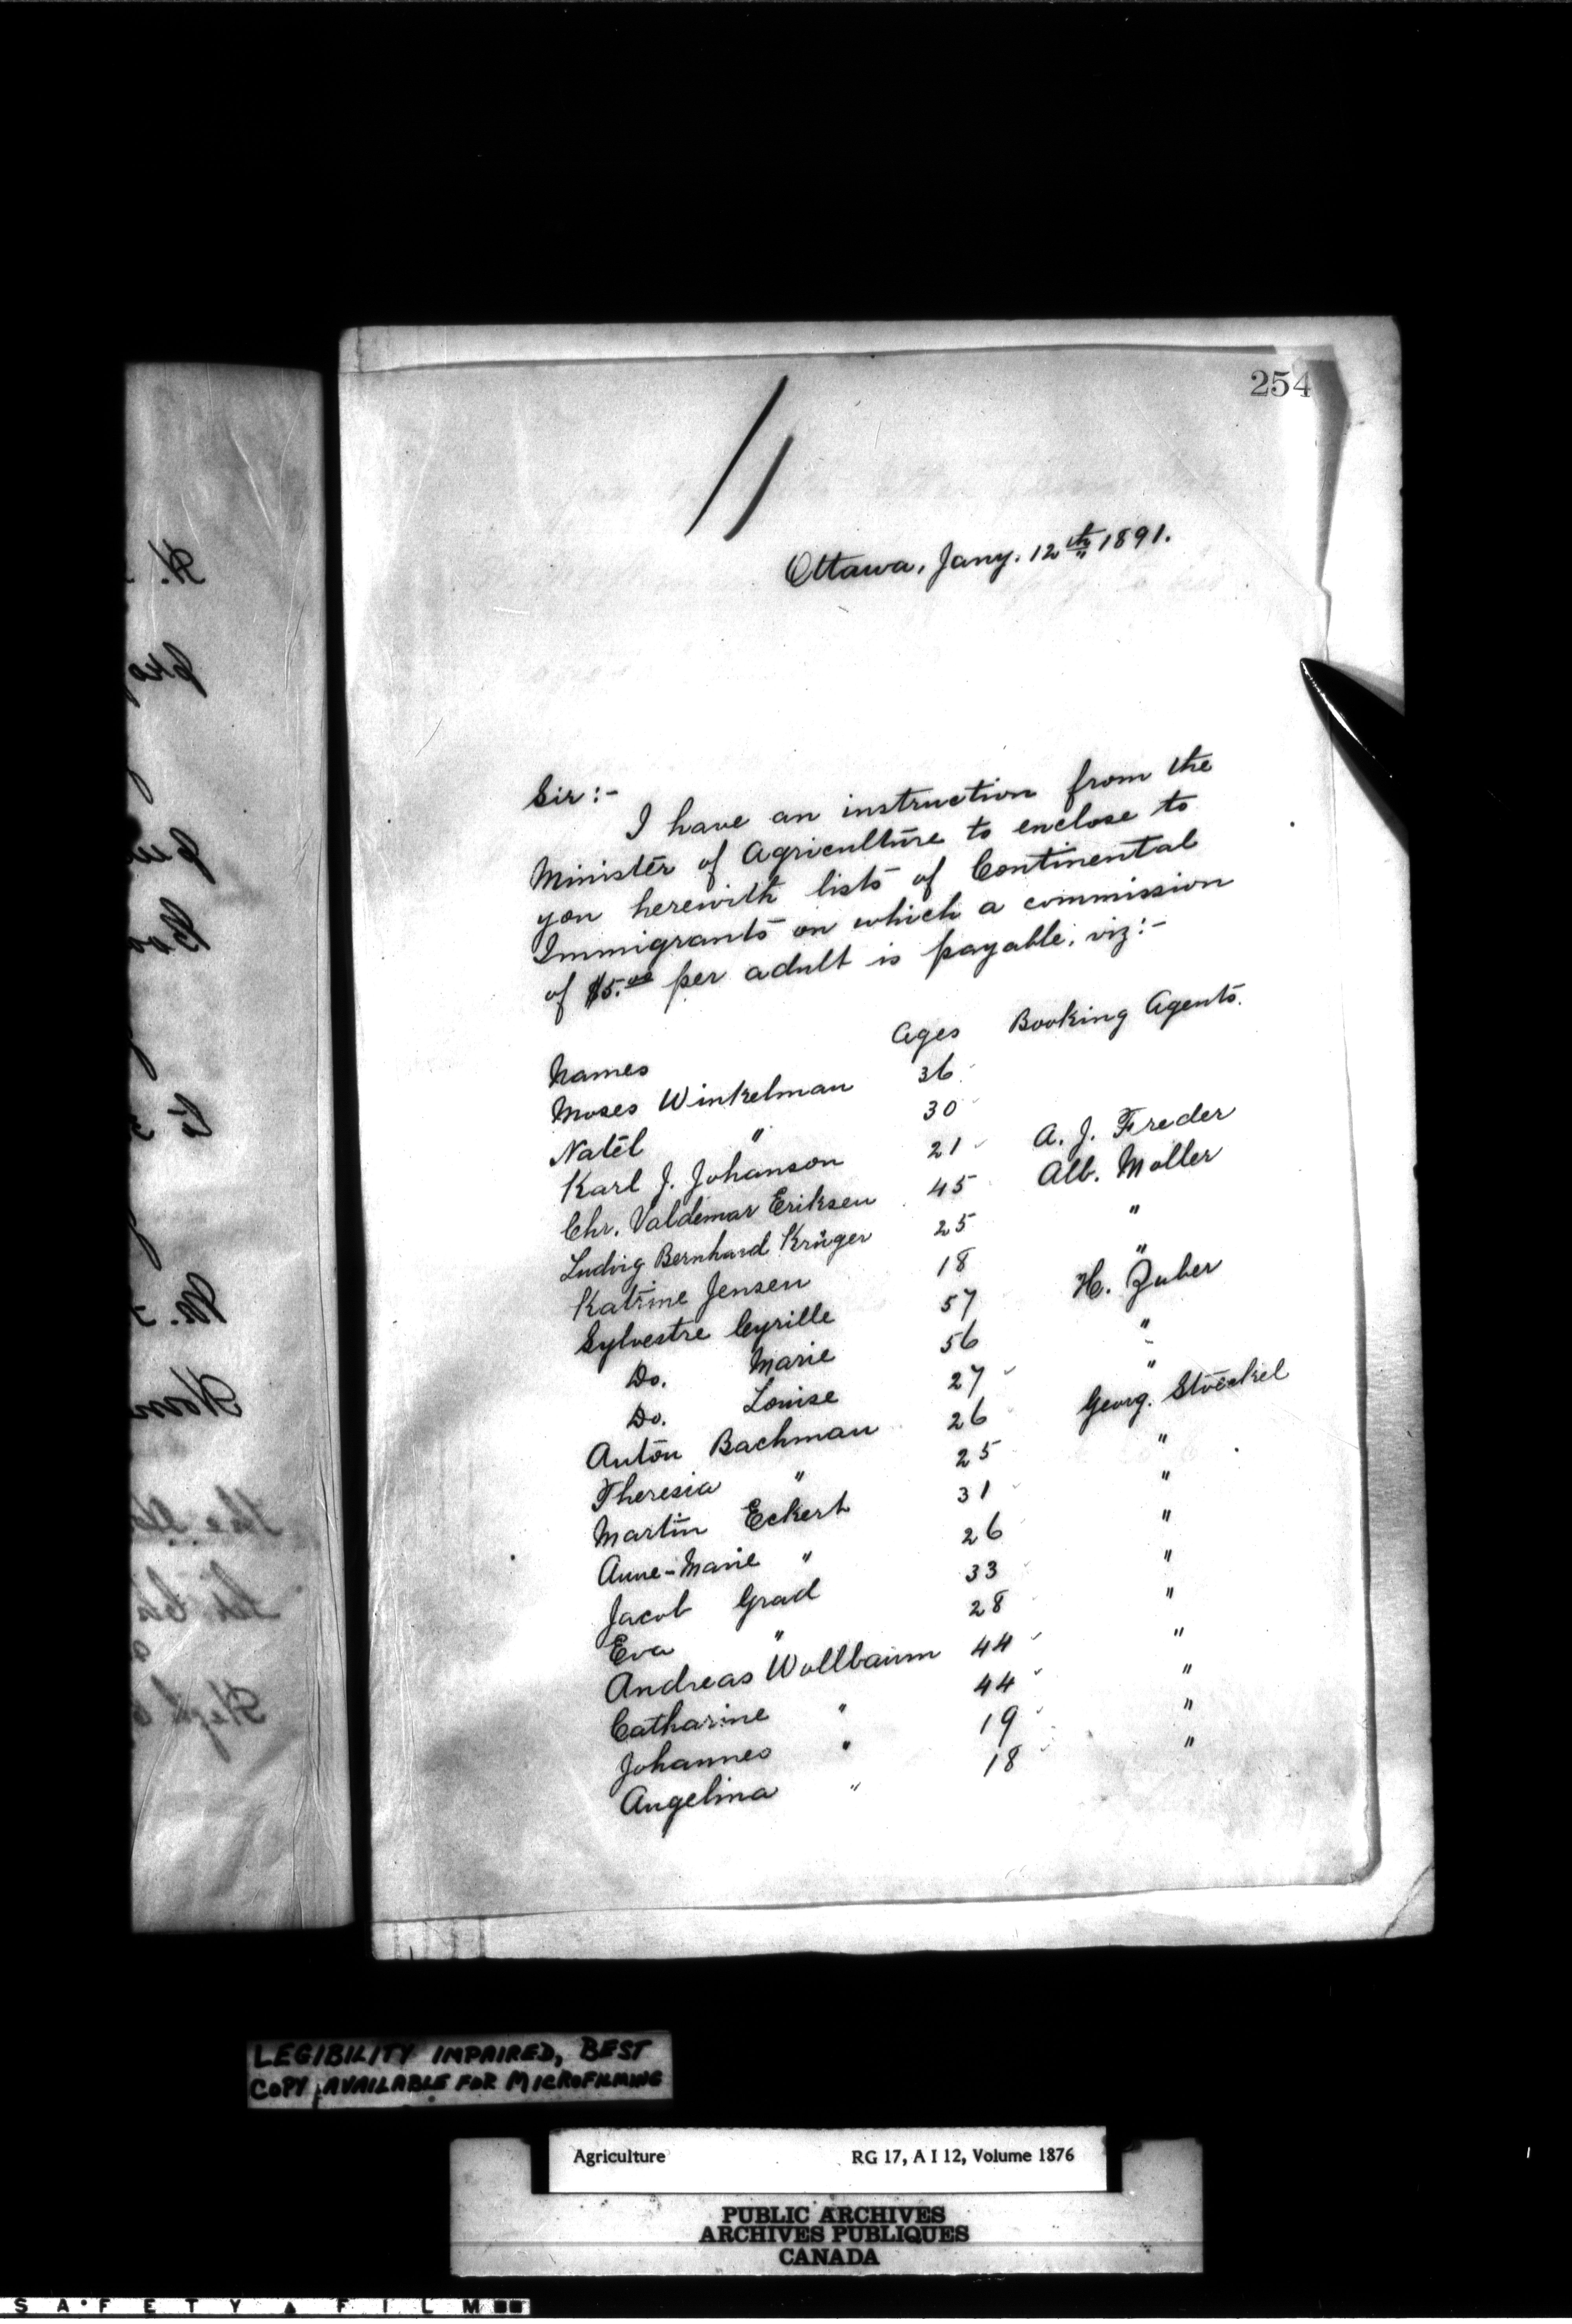 254
Ottawa, Jany. 12th 1891.
Sir:-
I have an instruction from the
Minister of Agriculture to enclose to
you herewith lists of Continental
Immigrants on which a commission
of $5.00 per adult is payable, viz:-
Names Ages Booking Agents.
Moses Winkelman 36
Natel " 30
Karl J. Johanson 21 A. J. Freder
Chr. Valdemar Eriksen 45 Alb. Moller
Ludvig Bernhard Krüger 25 "
Katrine Jensen 18 "
Sylvestre Cyrille 57 H. Zuber
Do. Marie 56 "
Do. Louise 27 "
Anton Bachman 26 Georg. Stoeckel
Theresia " 25 "
Martin Eckert 31 "
Anne-Marie " 26 "
Jacob Grad 33 "
Eva " 28 "
Andreas Wollbaum 44 "
Catharine " 44 "
Johannes " 19 "
Angelina " 18 "
LEGIBILITY IMPAIRED, BEST
COPY AVAILABLE FOR MICROFILMING
Agriculture RG 17, A I 12, Volume 1876
PUBLIC ARCHIVES
ARCHIVES PUBLIQUES
CANADA
SAFETY FILM